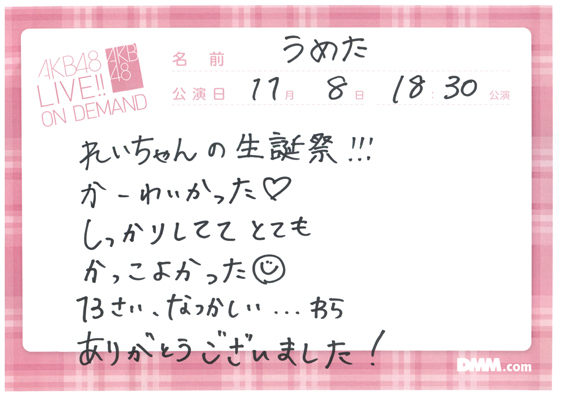 AKB48
LIVE!!
ON DEMAND
AKB
48
名前 うめた
公演日 11月 8日 18:30 公演
れいちゃんの生誕祭!!!
かーわいかった♡
しっかりしてて とても
かっこよかった☺
13さい、なつかしい...わら
ありがとうございました!
DMM.com